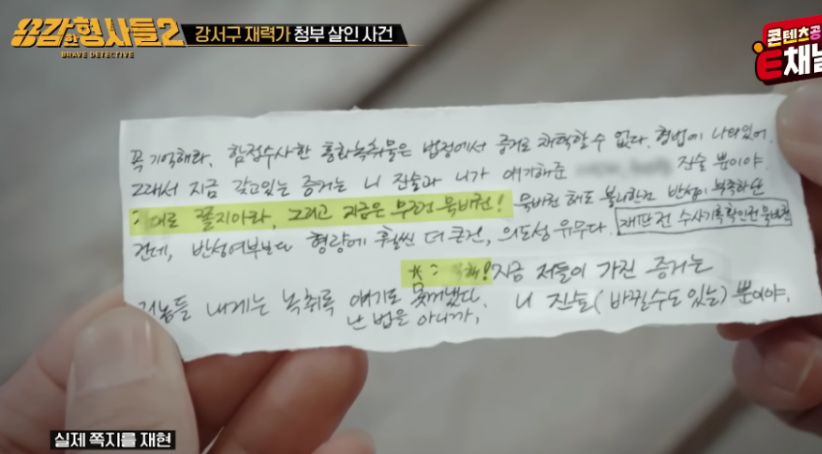 용감한형사들2
BRAVE DETECTIVE
강서구 재력가 청부 살인 사건
콘텐츠공
E채널
꼭 기억해라. 함정수사한 통화녹취물은 법정에서 증거로 채택할 수 없다. 형법에 나타있어.
그래서 지금 갖고있는 증거는 니 진술과 니가 얘기해준 진술 뿐이야.
대로 쫄지마라, 그리고 지금은 무조건 묵비권! 묵비권 해도 불리한건 반성이 부족하단
건데, 반성여부보다 형량에 훨씬 더 큰건, 의도성 유무다. 재판 전 수사기록확인전 묵비권
지금 저들이 가진 증거는
저놈들 내게는 녹취록 얘기도 못꺼냈다. 니 진술(바뀔수도 있는) 뿐이야.
난 법을 아니까,
실제 쪽지를 재현